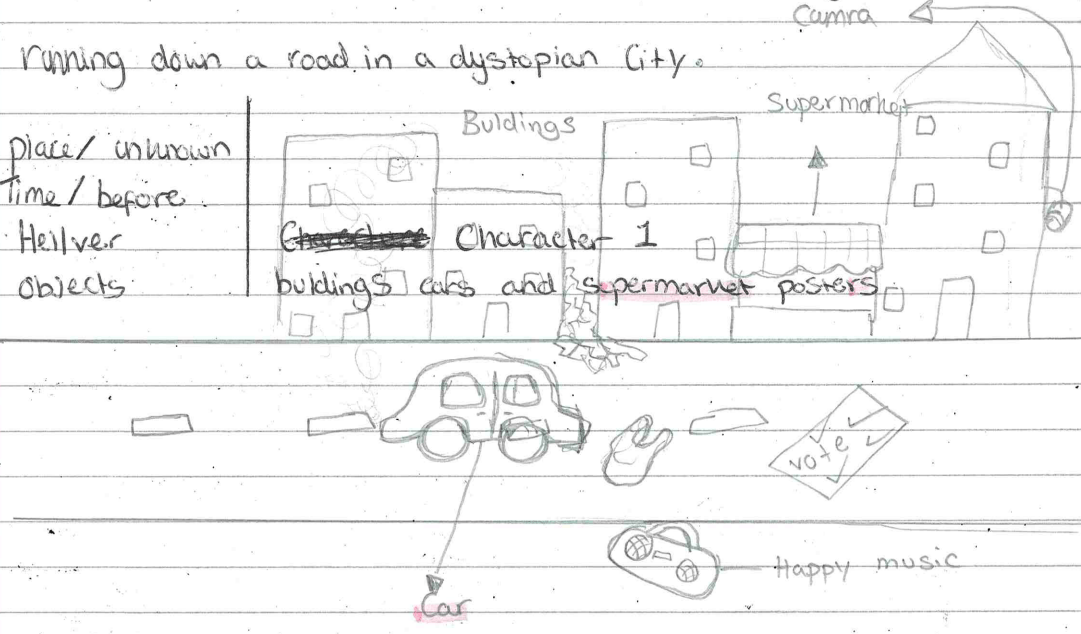 Camra
running down a road in a dystopian City.
Supermarket
Buldings
place/ unknown
Time/before
Heilver
Character 1
objects
buldings cars and supermarket posters
vote
Happy music
Car